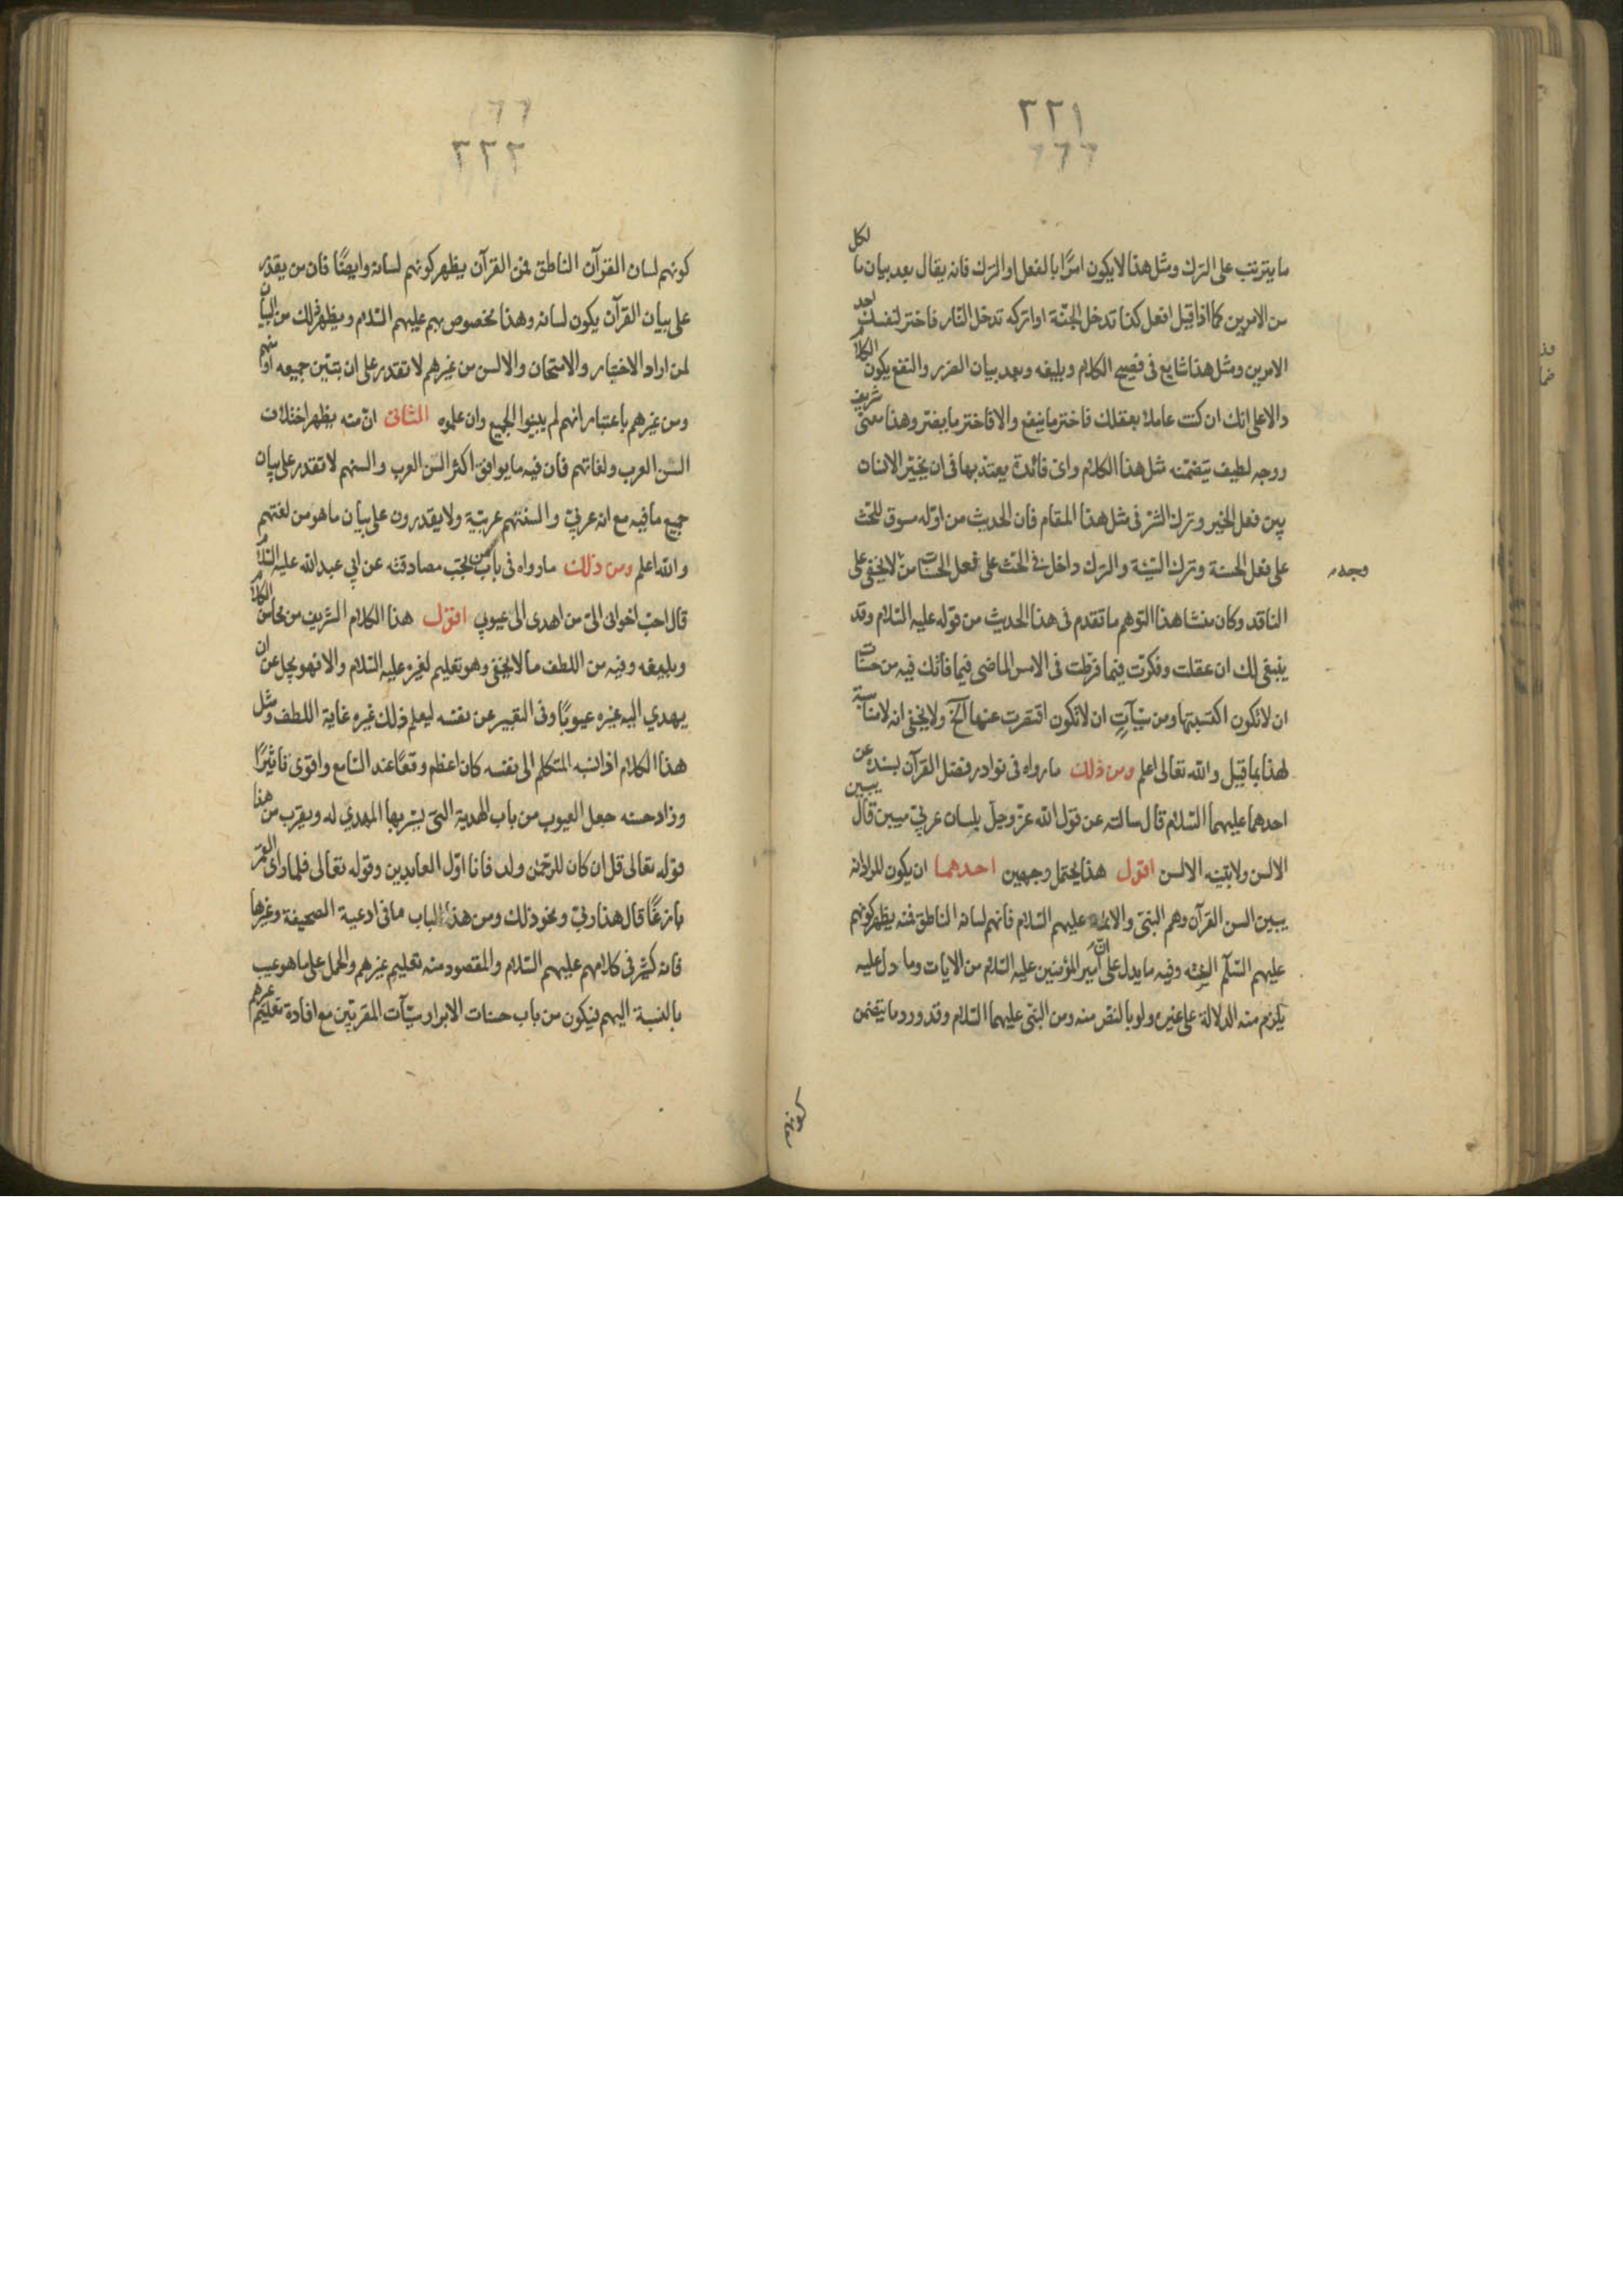 ٢٢١
ما يترتب على الترك ومثل هذا لا يكون امرًا بالفعل او الترك فانه يقال بعد بيان ما لكل
من الامرين كما اذا قيل افعل كذا تدخل الجنّة او اتركه تدخل النّار فاختر لنفسك احد
الامرين ومثل هذا شايع فى فصيح الكلام وبليغه وبعد بيان الضرر والنفع يكون الكلام
دالا على انك ان كنت عاملا بعقلك فاختر ما ينفع والا فاختر ما يضرّ وهذا معنى شريف
ووجه لطيف يتضمّنه مثل هذا الكلام واىّ فائدة يعتدّ بها فى ان يخيّر الانسان
بين فعل الخير وترك الشرّ فى مثل هذا المقام فان الحديث من اوّله مسوق للحثّ
على فعل الحسنة وترك السّيئة والترك داخل فى الحثّ على فعل الحسنات من لا يخفى على
وجه
الناقد وكان منشا هذا التوهم ما تقدم فى هذا الحديث من قوله عليه السّلام وقد
ينبغى لك ان عقلت وفكرت فيما فرّطت فى الامس الماضى فيما فاتك فيه من حسنات
ان لا تكون اكتسبتها ومن سيّآتٍ ان لا تكون اقتصرت عنها آلخ ولا يخفى انه لا مناسبة
لهذا بما قيل والله تعالى اعلم ومن ذلك ما رواه فى نوادر فضل القرآن بسنده عن
احدهما عليهما السّلام قال سالته عن قول الله عزّ وجلّ بلسان عربيّ مبين قال يبين
الالسن ولا تبينه الالسن اقول هذا يحتمل وجهين احدهما ان يكون المراد انه
يبين السن القرآن وهم النبىّ والائمة عليهم السّلام فانهم لسانه الناطق فمنه يظهر كونهم
عليهم السّلم السنته وفيه ما يدل على انّ امير المؤمنين عليه السّلام من الايات وما دل عليه
يلزم منه الدلالة على غيره ولو بالنص منه ومن النبى عليهما السّلام وقد ورد ما يتضمن
كونهم
٢٢٢
كونهم لسان القرآن الناطق فمن القرآن يظهر كونهم لسانه وايضًا فان من يقدر
على بيان القرآن يكون لسانه وهذا مخصوص بهم عليهم السّلام ويظهر ذلك من البيان
لمن اراد الاختبار والامتحان والالسن من غيرهم لا تقدر على ان تبيّن جميعه او منهم
ومن غيرهم باعتبار انهم لم يبينوا الجميع وان علموه الثانى انّ منه يظهر اختلاف
السن العرب ولغاتهم فان فيه ما يوافق اكثر السن العرب والسنهم لا تقدر على بيان
جميع ما فيه مع انه عربيّ والسنتهم عربيّة ولا يقدرون على بيان ما هو من لغتهم
والله اعلم ومن ذلك ما رواه فى باب من تجب مصادقته عن ابي عبد الله عليه السّلام
قال احبّ اخوانى الىّ من اهدى الىّ عيوبي اقول هذا الكلام الشريف من محاسن الكلام
وبليغه وفيه من اللطف ما لا يخفى وهو تعليم لغيره عليه السّلام والا فهو يجل عن ان
يهدي اليه غيره عيوبًا وفى التعبير عن نفسه ليعلم ذلك غيره غاية اللطف ومثل
هذا الكلام اذا نسبه المتكلم الى نفسه كان اعظم وقعًا عند السّامع واقوى تاثيرًا
وزاد حسنه جعل العيوب من باب الهدية التى يسرّ بها المهدي له ويقرب من هذا
قوله تعالى قل ان كان للرّحمٰن ولد فانا اوّل العابدين وقوله تعالى فلما راى القمر
بازغًا قال هذا ربّي ونحو ذلك ومن هذا الباب ما فى ادعية الصحيفة وغيرها
فانه كثير فى كلامهم عليهم السّلام والمقصود منه تعليم غيرهم والحمل على ما هو عيب
بالنسبة اليهم فيكون من باب حسنات الابرار سيّآت المقربين مع افادة تعليم غيرهم